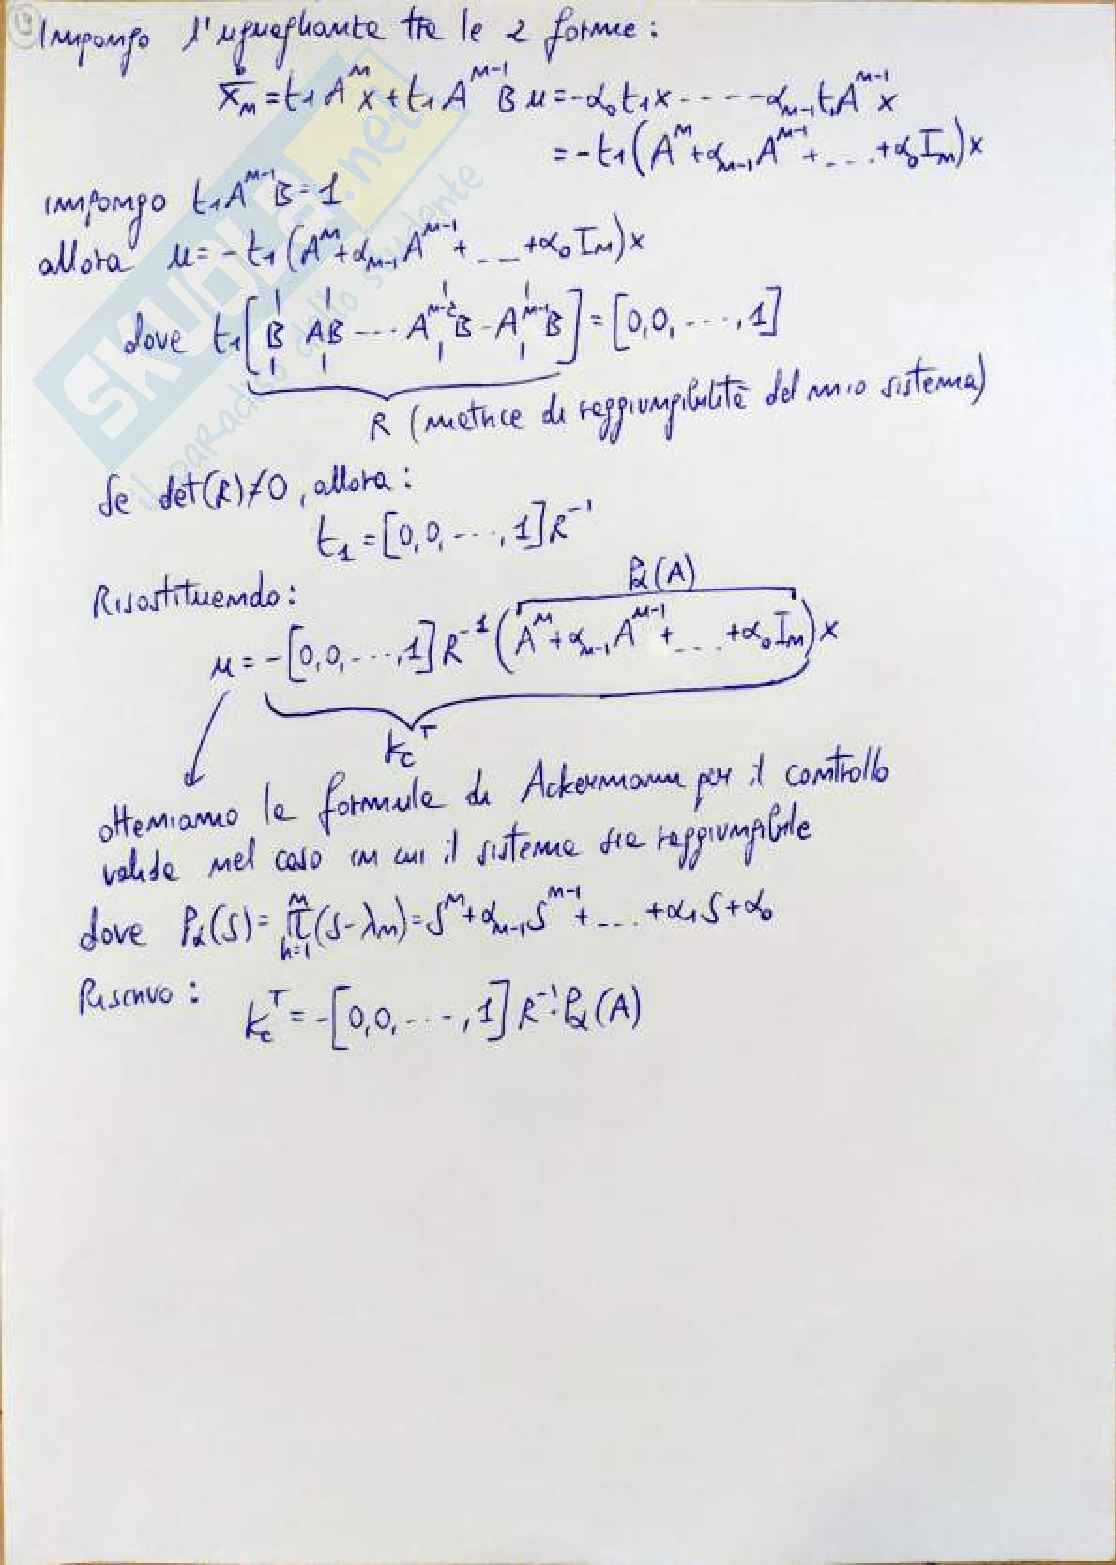 4
Impongo l'uguaglianza tra le 2 forme:
ẋ̄ₙ = t₁Aⁿx + t₁Aⁿ⁻¹B u = -α₀t₁x - ... - αₙ₋₁t₁Aⁿ⁻¹x
= -t₁(Aⁿ + αₙ₋₁Aⁿ⁻¹ + ... + α₀Iₙ)x
impongo t₁Aⁿ⁻¹B = 1
allora u = -t₁(Aⁿ + αₙ₋₁Aⁿ⁻¹ + ... + α₀Iₙ)x
dove t₁[B AB ... Aⁿ⁻²B - Aⁿ⁻¹B] = [0,0,...,1]
R (matrice di raggiungibilità del mio sistema)
Se det(R)≠0, allora:
t₁ = [0,0,...,1]R⁻¹
Risostituendo:
Pα(A)
u = -[0,0,...,1]R⁻¹(Aⁿ + αₙ₋₁Aⁿ⁻¹ + ... + α₀Iₙ)x
Kcᵀ
otteniamo la formula di Ackermann per il controllo
valida nel caso in cui il sistema sia raggiungibile
dove Pα(S) = ∏ₕ₌₁ⁿ(S-λₙ) = Sⁿ + αₙ₋₁Sⁿ⁻¹ + ... + α₁S + α₀
Riscrivo: Kcᵀ = -[0,0,...,1]R⁻¹·Pα(A)
SKUOLA.net
il paradiso dello studente